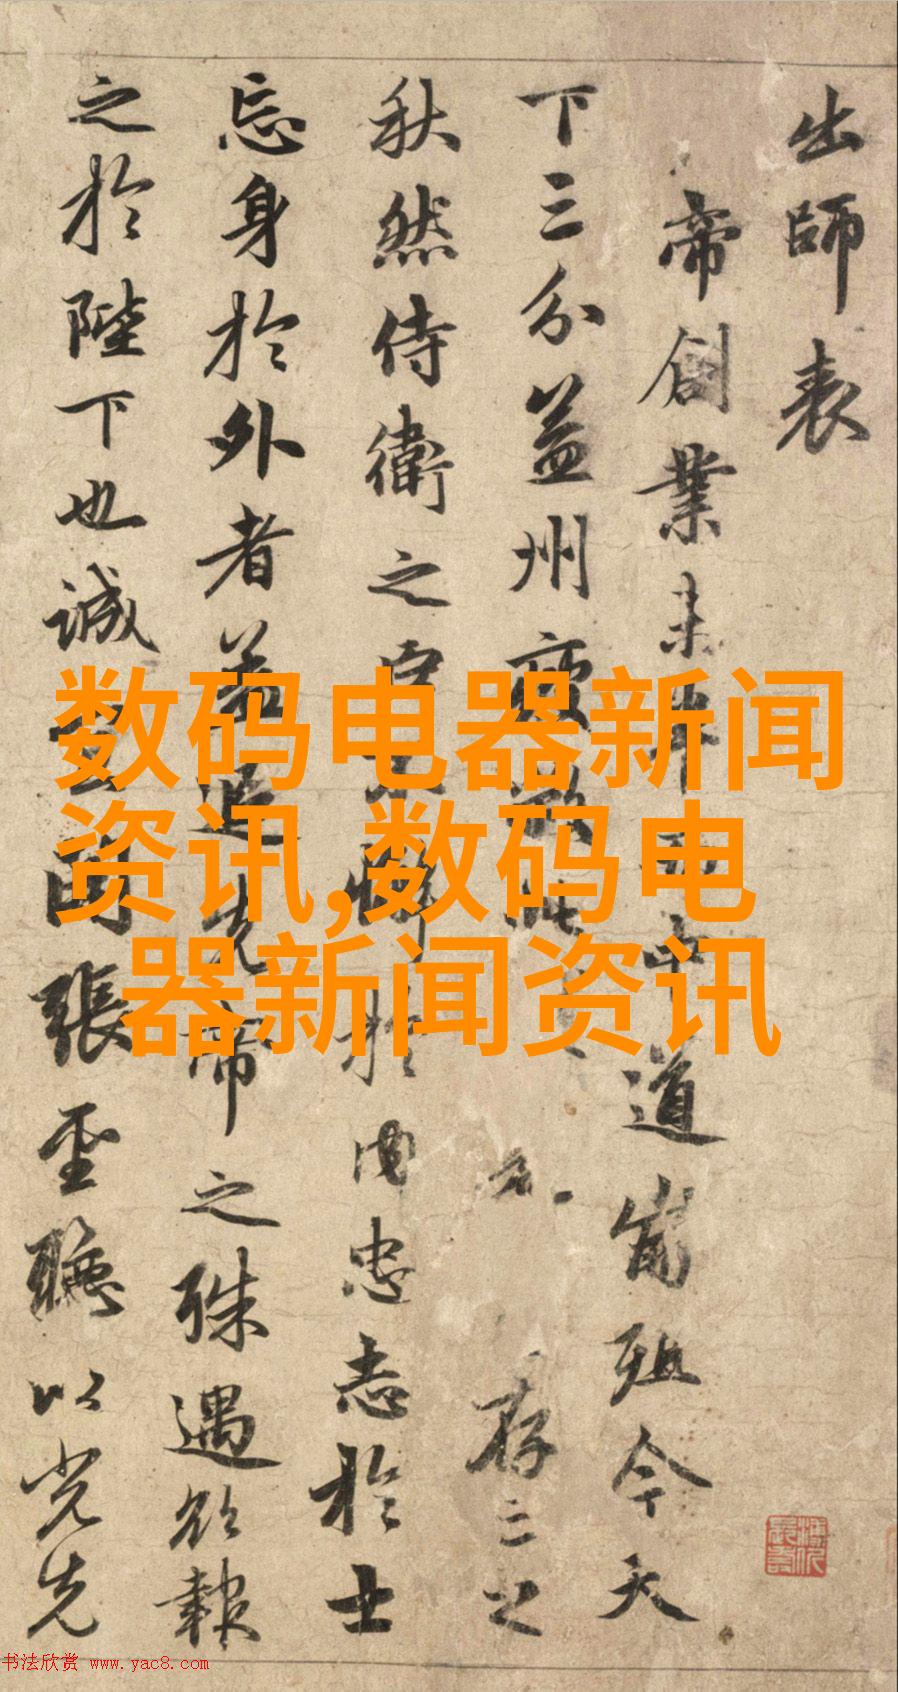 出師表
帝創業未半而中道崩殂今天
下三分益州疲敝此存之
秋然侍衛之臣不懈於内忠志於士
忘身於外者蓋追先帝之殊遇欲報
之於陛下也誠宜開張聖聽以光先
数码电器新闻
资讯,数码电
器新闻资讯
书法欣赏 www.yac8.com